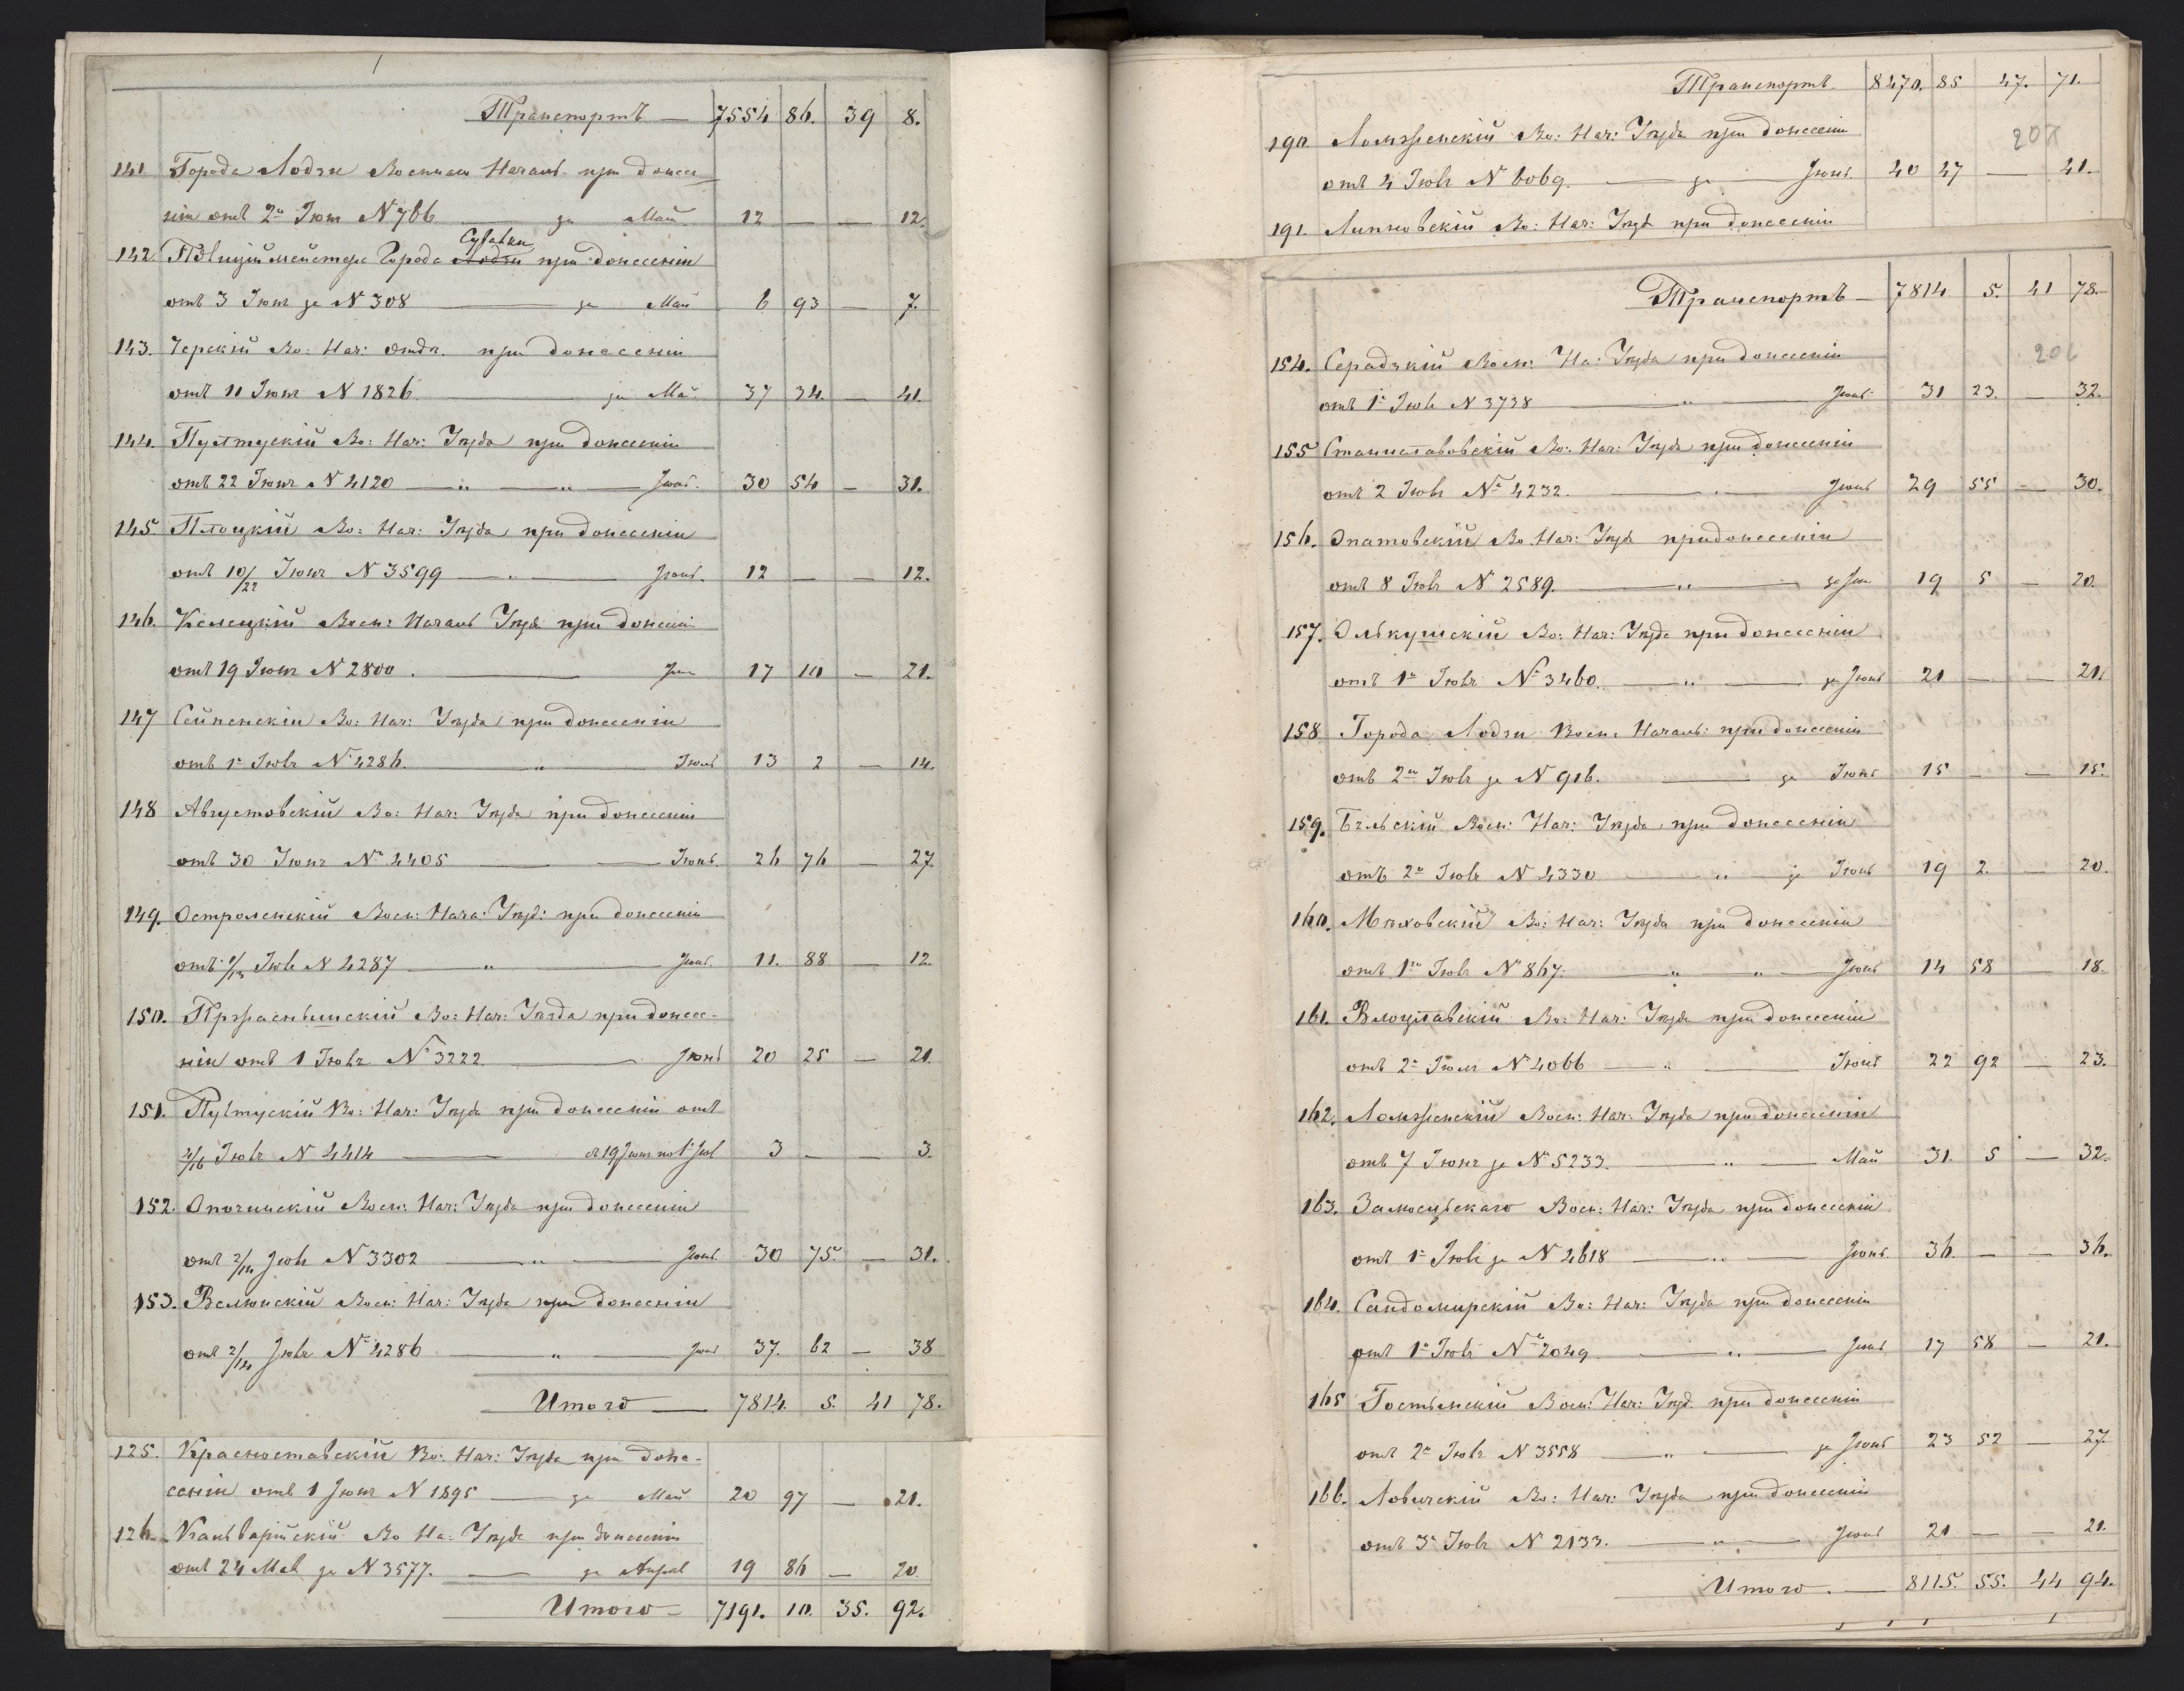 Транспортъ — 7554 86. 39 8.
141 Города Лодзи Военнаго Началь. при донесе-
ніи отъ 2го Іюня N 766 — за Май 12 — — 12.
Сувалки
142. Полицiймейстера Города Лодзи при донесеніи
отъ 3 Іюня за N 308 — за Май 6 93 — 7.
143. Черскій Во: Нач: отдѣ. при донесеніи
отъ 11 Іюня N 1826. — за Май 37 34. — 41.
144. Пултускій Во: Нач: Уѣзда при донесеніи
отъ 22 Іюня N 4120 — „ — „ — Іюнь. 30 54 — 31.
145. Плоцкій Во: Нач: Уѣзда при донесеніи
отъ 10/22 Іюня N 3599 — „ — Іюнь. 12 — — 12.
146. Келецкій Воен: Началь Уѣзда при донесеніи
отъ 19 Іюня N 2800. — Іюнь 17 10 — 21.
147 Сейненскій Во: Нач: Уѣзда при донесеніи
отъ 1го Іюля N 4286. — „ — Іюнь 13 2 — 14.
148 Августовскій Во: Нач: Уѣзда при донесеніи
отъ 30 Іюня N 4405 — Іюнь. 26 76 — 27.
149. Остроленскій Воен: Нача: Уѣзд: при донесеніи
отъ 1/13 Іюля N 4287 — „ — Іюнь. 11. 88 — 12.
150. Пржаснышскій Во: Нач: Уѣзда при донесе-
ніи отъ 1 Іюля N 3222. — Іюнь 20 25 — 21.
151. Пултускій Во: Нач: Уѣзда при донесеніи отъ
4/16 Іюля N 4414 — съ 19 Іюня по 1 Іюл 3 — — 3.
152. Опочинскій Воен: Нач: Уѣзда при донесеніи
отъ 2/14 Іюля N 3302 — „ — Іюнь. 30 75. — 31.
153. Велюнскій Воен: Нач: Уѣзда при донесеніи
отъ 2/14 Іюля N 4286 — „ — Іюнь 37. 62 — 38
Итого — 7814. 5. 41 78.
125. Красноставскій Во: Нач: Уѣзда при доне-
сеніи отъ 1 Іюня N 1895 — за Май 20 97 — 21.
126. Кальварійскій Во На: Уѣзда при донесеніи
отъ 24 Мая за N 3577. — за Апрѣль 19 86 — 20
Итого — 7191. 10. 35. 92.
Транспортъ. 8470. 85 47. 71.
190. Ломженскій Во: Нач: Уѣзда при донесеніи
207
отъ 4 Іюля N 6069. — за — Іюнь. 40 47 — 41.
191. Липновскій Во: Нач: Уѣзд при донесеніи
Транспортъ — 7814 5. 41 78.
154. Серадзкій Воен: На: Уѣзда при донесеніи
206
отъ 1го Іюля N 3738 — „ — Іюнь. 31 23. — 32.
155 Станиславовскій Во: Нач: Уѣзда при донесеніи
отъ 2 Іюля N 4232. — „ — Іюнь 29 55 — 30.
156. Опатовскій Во Нач: Уѣзда при донесеніи
отъ 8 Іюля N 2589. — „ — за Іюн 19 5 — 20.
157. Олькушскій Во: Нач: Уѣзда при донесеніи
отъ 1го Іюля N 3460. — „ — за Іюнь 21 — — 21.
158 Города Лодзи Воен: Началь: при донесеніи
отъ 2го Іюля за N 916. — за Іюнь 15 — — 15.
159. Бѣльскій Воен: Нач: Уѣзда при донесеніи
отъ 2го Іюля N 4330 — „ — за Іюнь 19 2. — 20.
160. Мѣховскій Во: Нач: Уѣзда при донесеніи
отъ 1го Іюля N 867. — „ — „ — Іюнь 14 58 — 18.
161. Влоцлавскій Во: Нач: Уѣзда при донесеніи
отъ 2го Іюля N 4066 — „ — Іюнь 22 92 — 23.
162. Ломженскій Воен: Нач: Уѣзда при донесеніи
отъ 7 Іюня за N 5233. — „ — Май 31. 5 — 32.
163. Замосцьскаго Воен: Нач: Уѣзда при донесеніи
отъ 1го Іюля за N 2618 — „ — Іюнь 36. — — 36.
164. Сандомирскій Во: Нач: Уѣзда при донесеніи
отъ 1го Іюля N 2049 — „ — Іюнь 17 58 — 21.
165 Гостынскій Воен: Нач: Уѣзд. при донесеніи
отъ 2го Іюля N 3558 — „ — за Іюнь 23 52 — 27.
166. Ловичскій Во: Нач: Уѣзда при донесеніи
отъ 3го Іюля N 2133. — „ — Іюнь 21 — — 21.
Итого. — 8115. 55. 44 94.